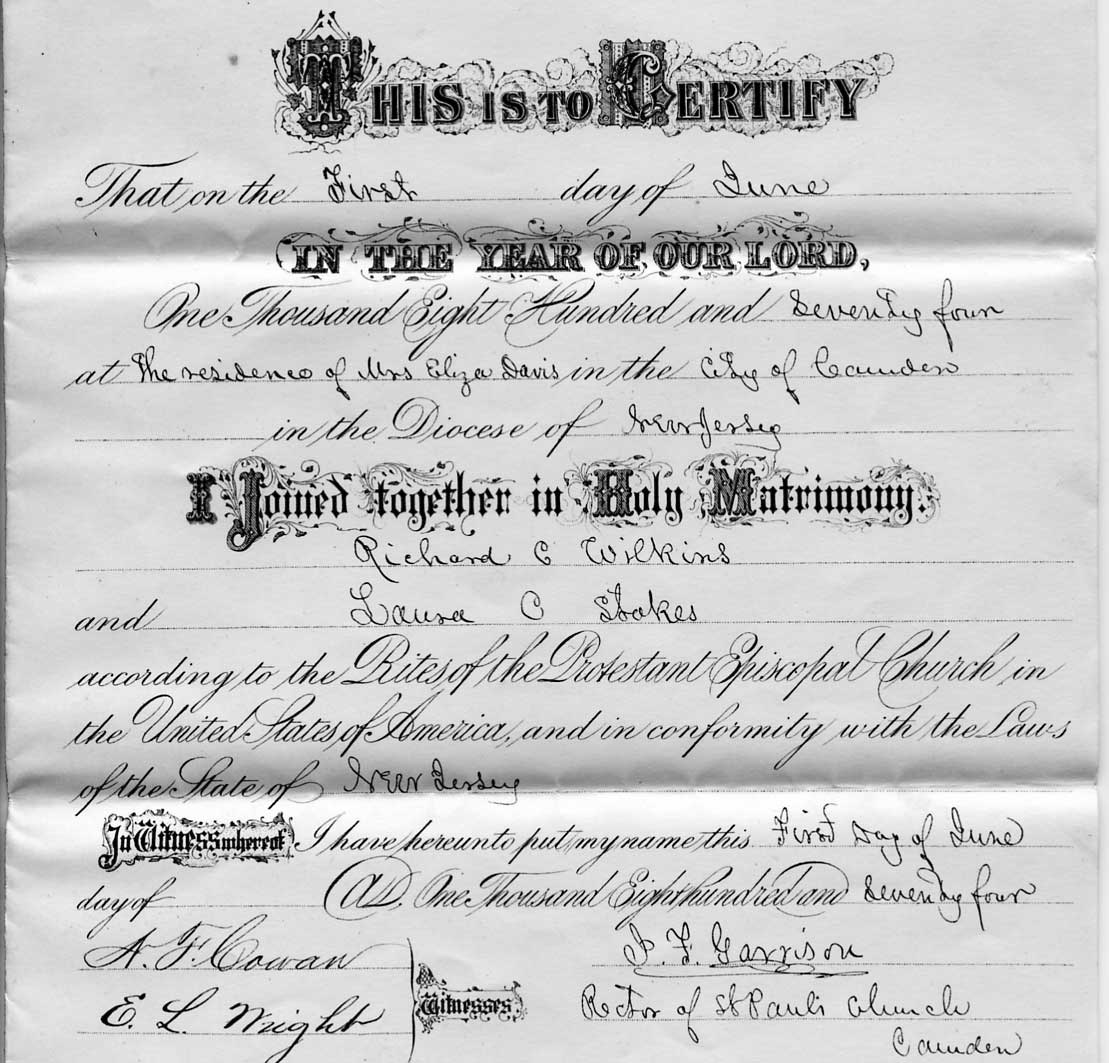 THIS IS TO CERTIFY
That on the First day of June
IN THE YEAR OF OUR LORD,
One Thousand Eight Hundred and Seventy four
at The residence of Mrs Eliza Davis in the City of Camden
in the Diocese of New Jersey
I Joined together in Holy Matrimony.
Richard C Wilkins
and Laura C Stokes
according to the Rites of the Protestant Episcopal Church in
the United States of America, and in conformity with the Laws
of the State of New Jersey
In Witness whereof I have hereunto put my name this First Day of June
day of A.D. One Thousand Eight hundred and Seventy four
A. F. Cowan
J. F. Garrison
E. L. Wright
Witnesses
Rector of St Paul's Church
Camden